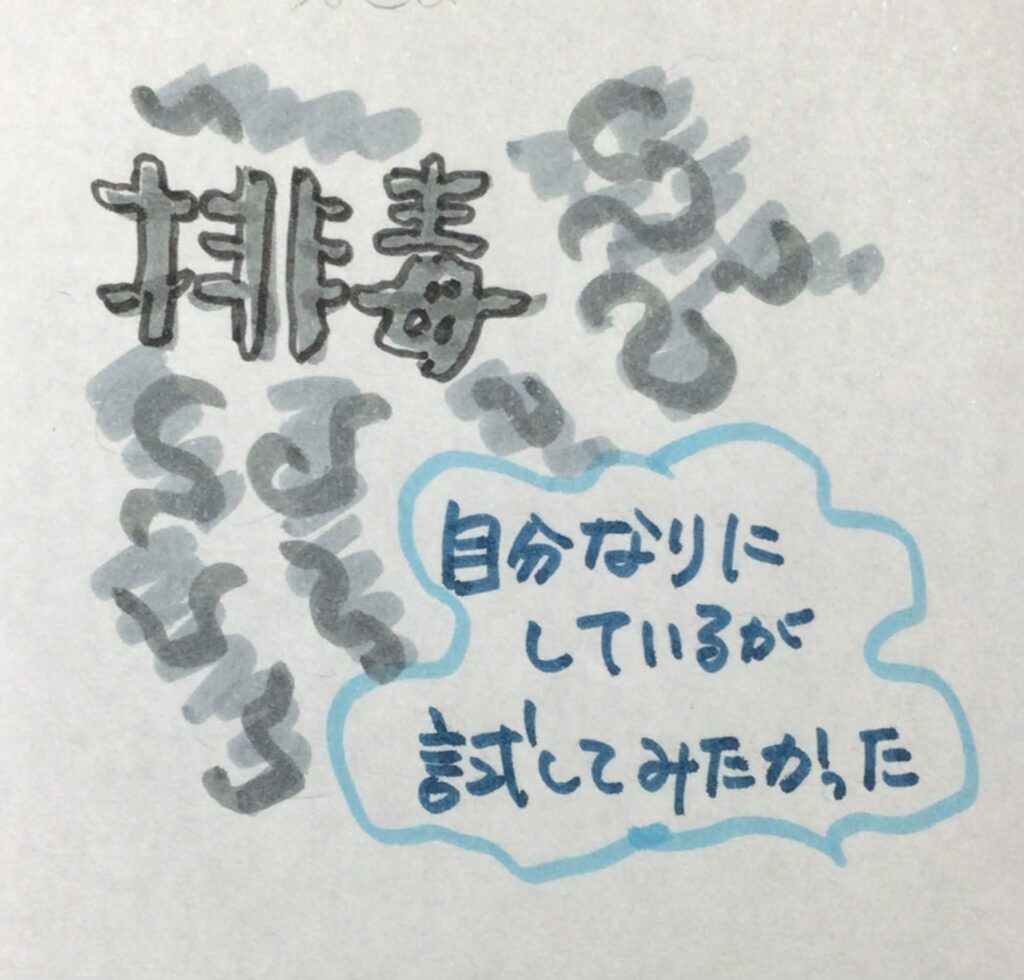 排毒
自分なりに
しているが
試してみたかった